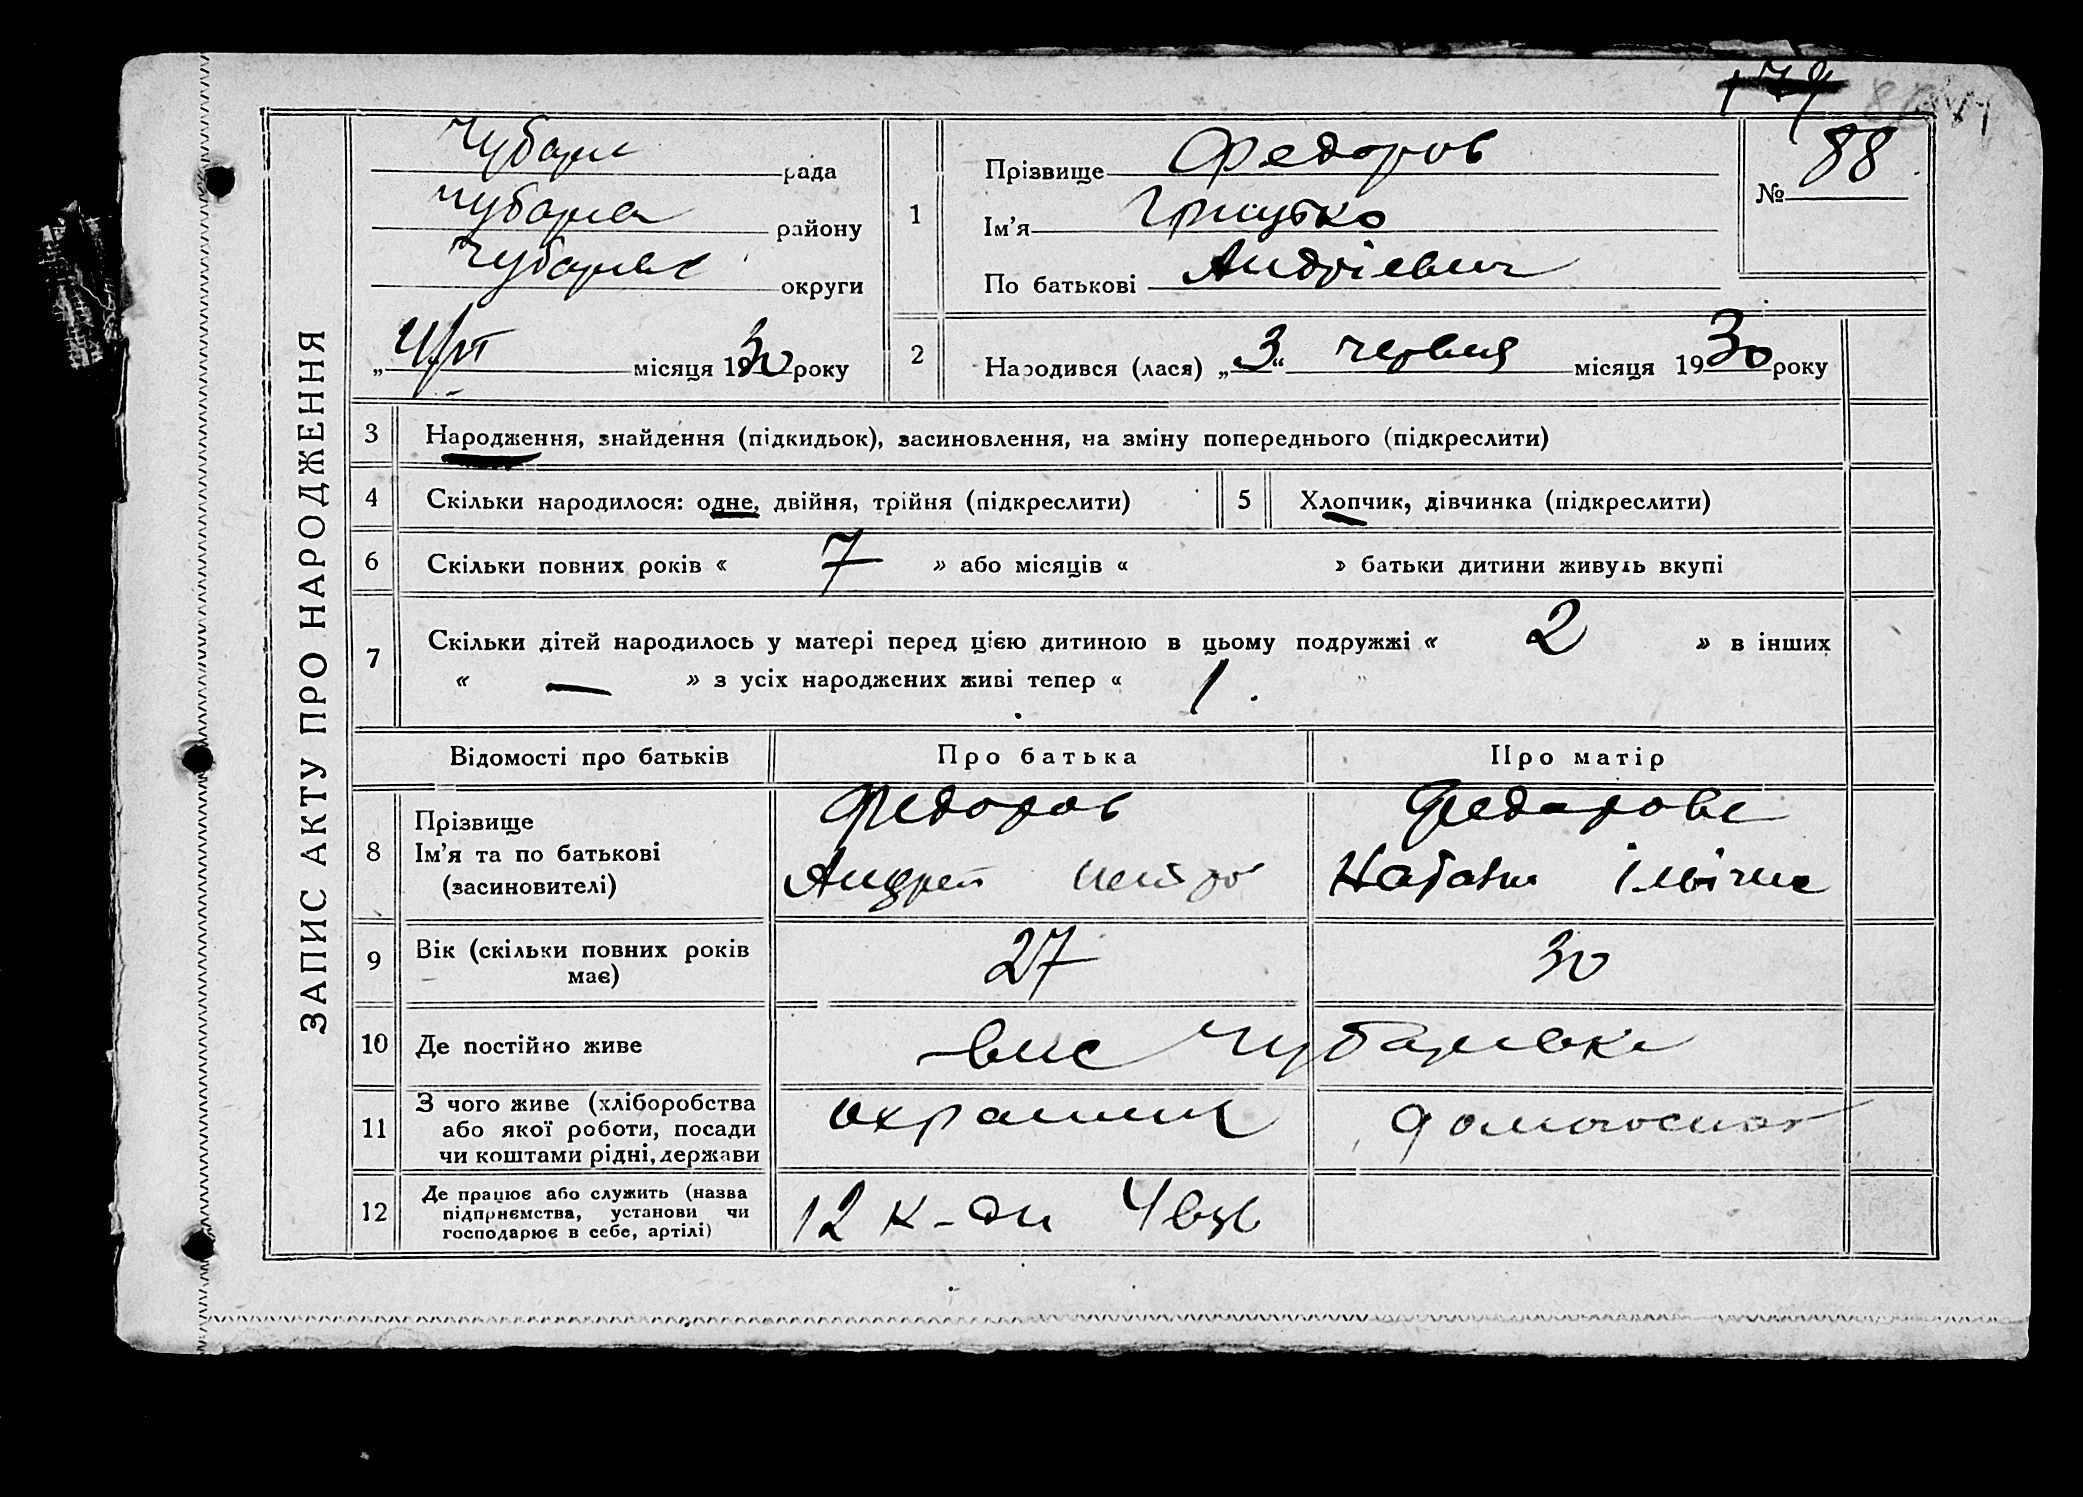 ЗАПИС АКТУ ПРО НАРОДЖЕННЯ
Чубари рада
Чубарів району
Чубарівс округи
„ місяця 1930 року
1
Прізвище Федоров
Ім'я Грицько
По батькові Андрієвич
№ 88
2
Народився (лася) „3“ червня місяця 1930 року
3 Народження, знайдення (підкидьок), засиновлення, на зміну попереднього (підкреслити)
4 Скільки народилося: одне, двійня, трійня (підкреслити) 5 Хлопчик, дівчинка (підкреслити)
6 Скільки повних років « 7 » або місяців « » батьки дитини живуть вкупі
7 Скільки дітей народилось у матері перед цією дитиною в цьому подружжі « 2 » в інших
« — » з усіх народжених живі тепер « 1. "
Відомості про батьків Про батька Про матір
8 Прізвище
Ім'я та по батькові
(засиновителі)
Федоров
Андрей
Федорове
9 Вік (скільки повних років
має)
27 30
10 Де постійно живе Чубарівка
11 З чого живе (хліборобства
або якої роботи, посади
чи коштами рідні, держави
охранник
12 Де працює або служить (назва
підприємства, установи чи
господарює в себе, артілі)
12 к-